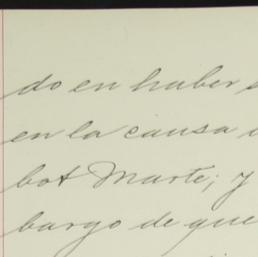 do en haber
en la causa
bot Marte; y
bargo de que